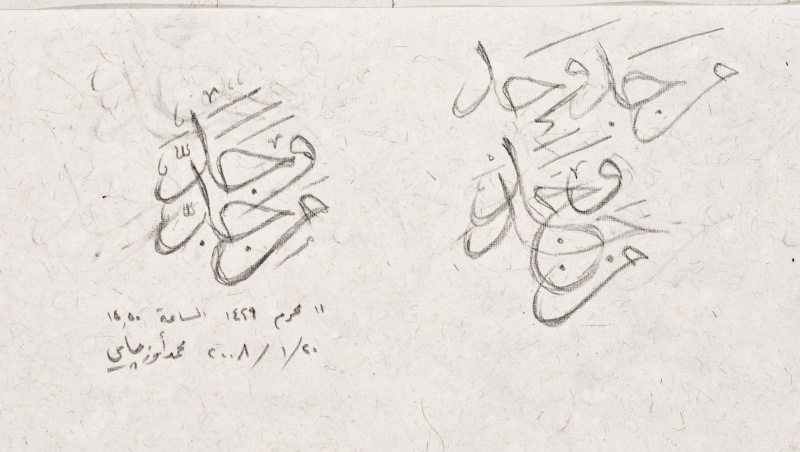 من جد وجد
من جد وجد
من جدّ وجدّ
١١ محرم ١٤٢٩ الساعة ١٥,٥٠
٢٠ / ١ / ٢٠٠٨ محمد